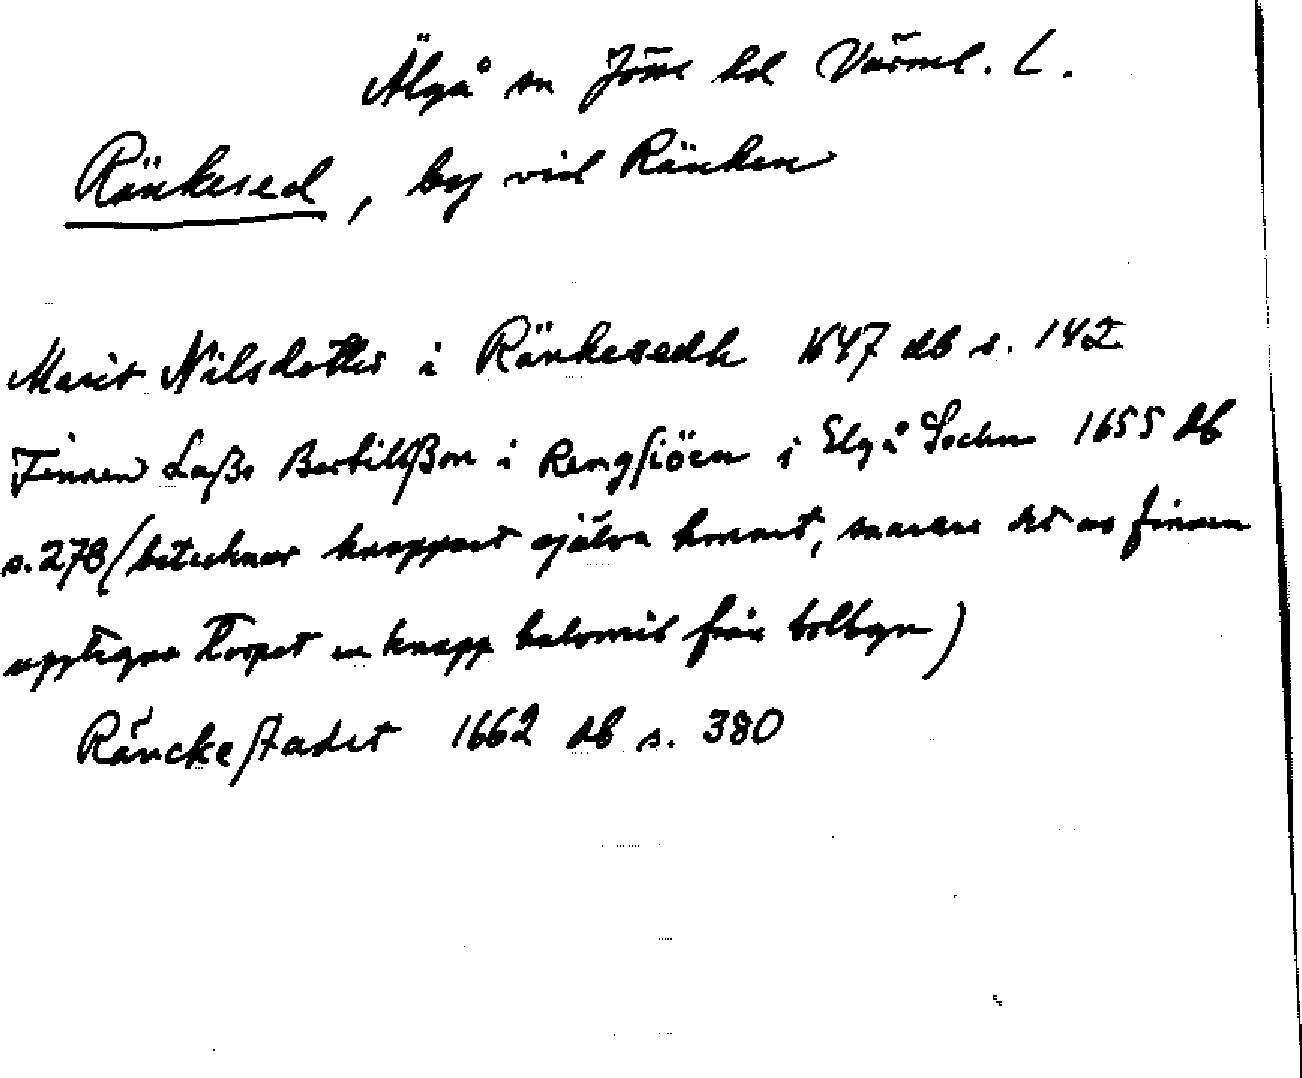 Älgå sn Jösse hd Värml. L.
Ränkesed, by vid Ränken
Marit Nilsdotter i Ränkesedh 1647 db s. 142
Finnen Laßе Bertilßon i Rengsiöen i Elgå Sochn 1655 db
s. 278 (betecknar knappast själva hemmet, snarare det av finnen
upptagna torpet en knapp halvmil från bolbyn)
Ränckestadet 1662 db s. 380